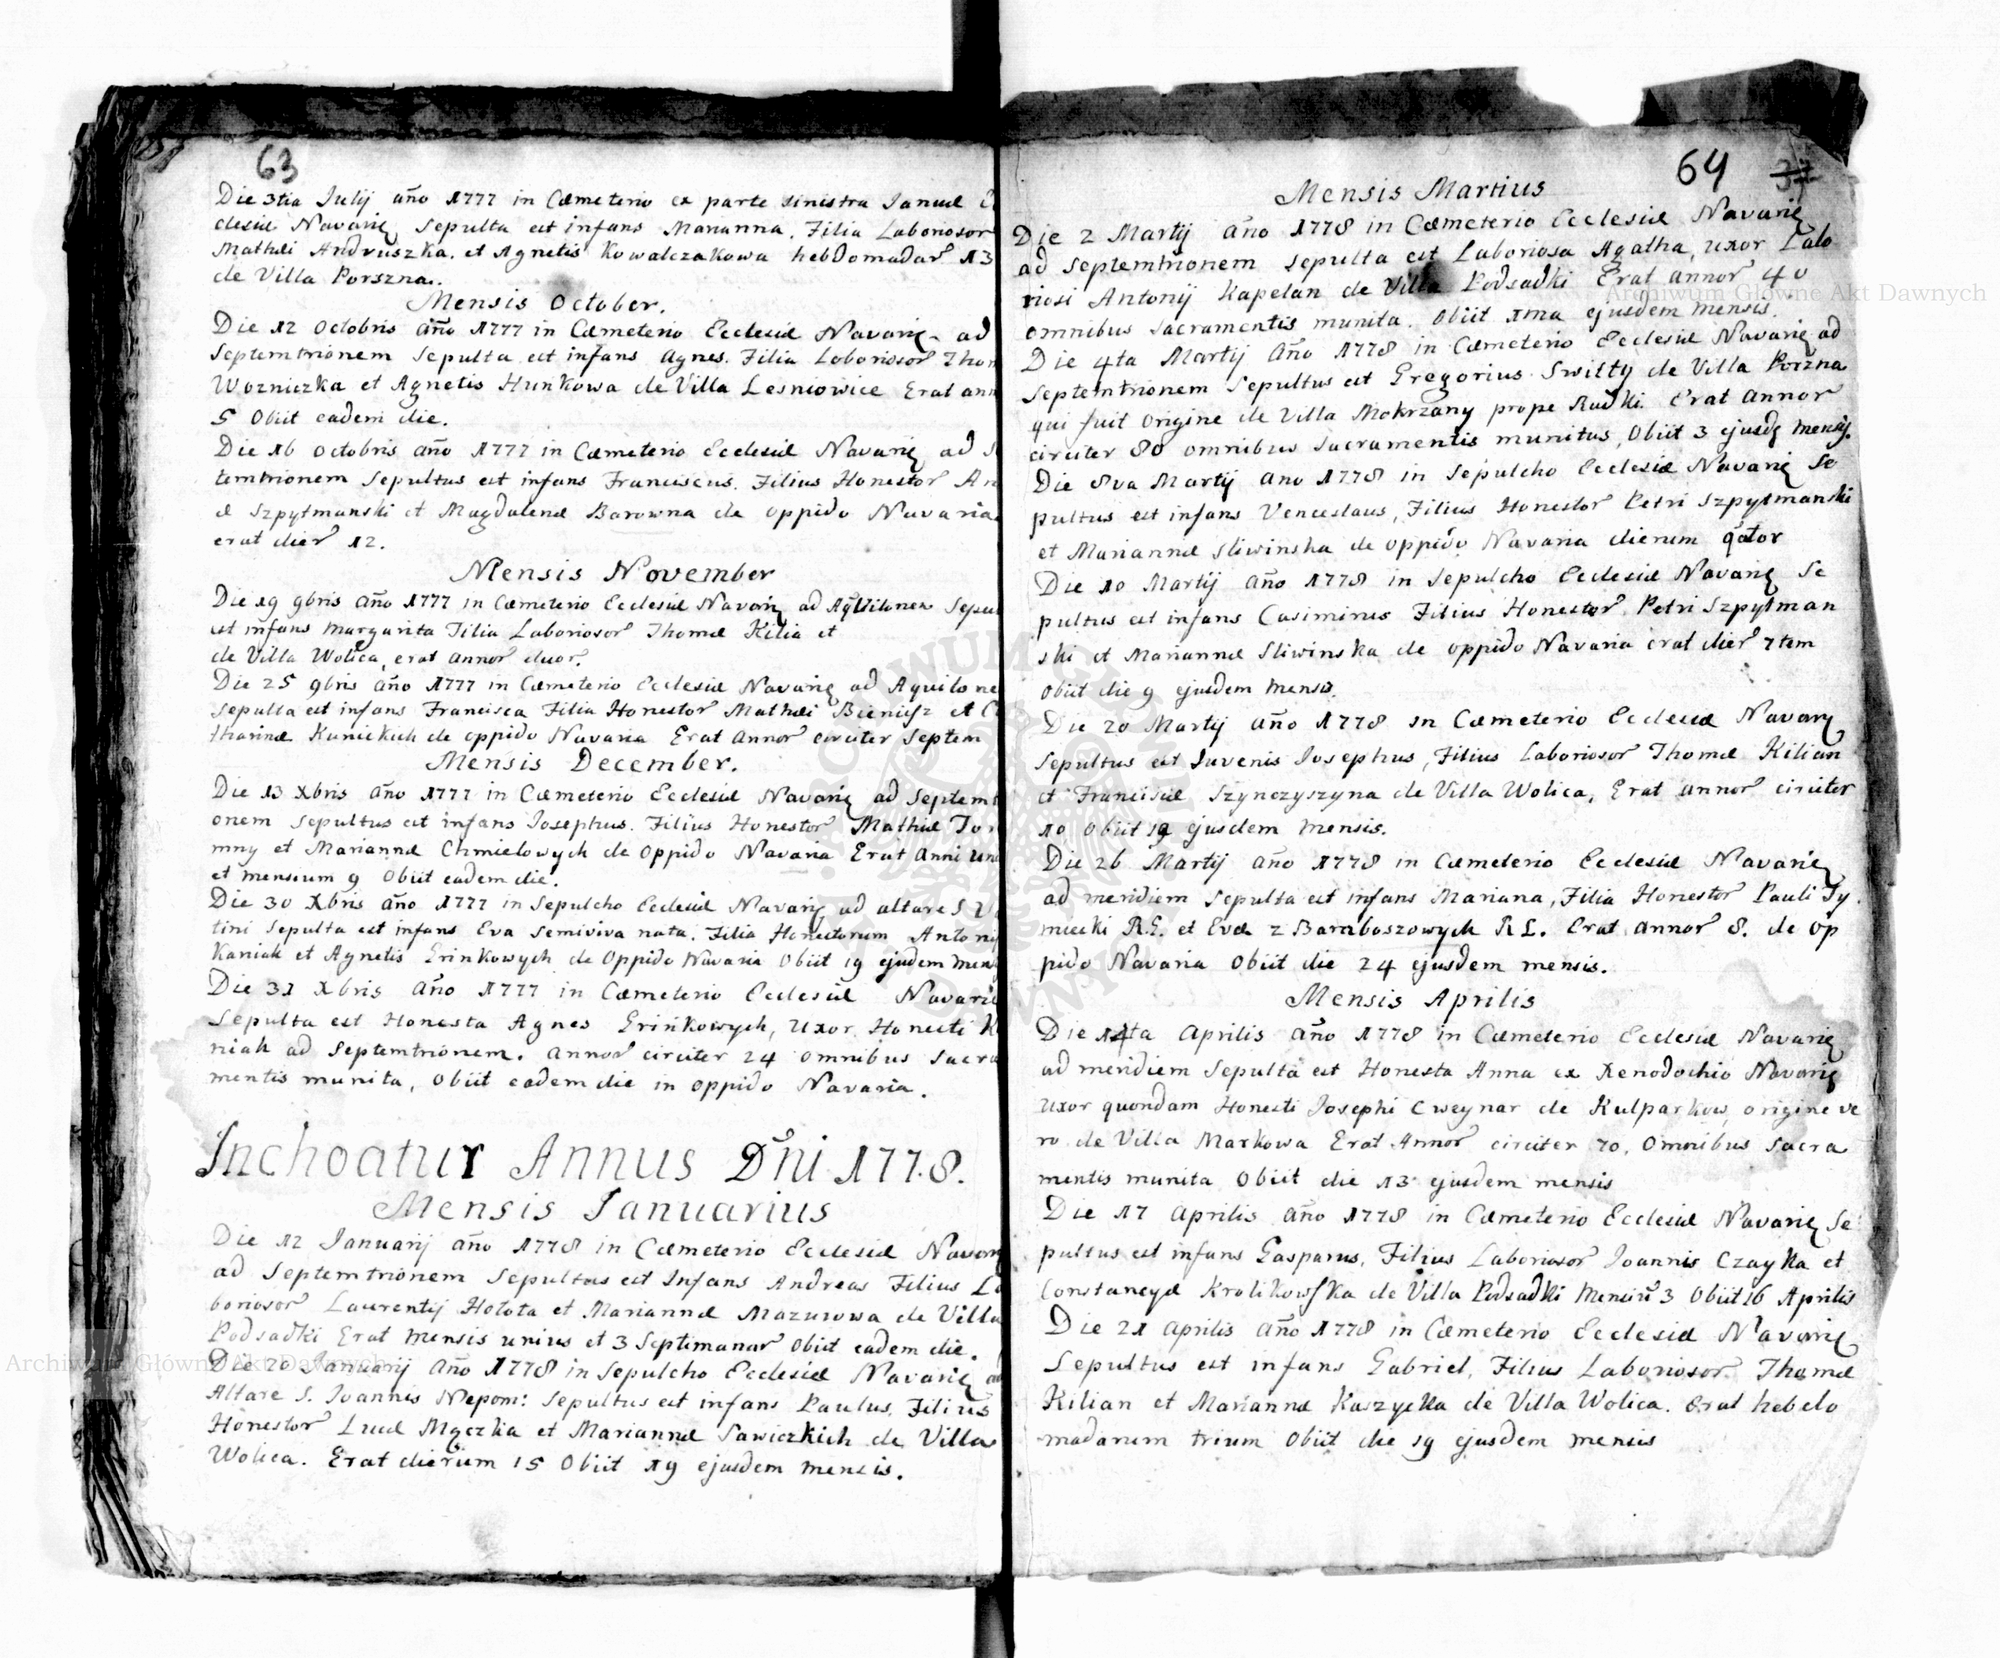 63
Die 3tia Julij año 1777 in Cæmeterio ex parte sinistra Januæ Ec
clesiæ Navarię, Sepulta est infans Marianna, Filia Laboriosor
Mathæi Andruszka, et Agnetis Kowalczakowa hebdomadar 13
de Villa Porszna.
Mensis October.
Die 12 Octobris año 1777 in Cæmeterio Ecclesiæ Navarię ad
Septemtrionem Sepulta est infans Agnes. Filia Laboriosor Thom
Wozniczka et Agnetis Hunkowa de Villa Lesniowice Erat ann
5 Obiit eadem die.
Die 16 Octobris año 1777 in Cæmeterio Ecclesiæ Navarię ad S
temtrionem Sepultus est infans Franciscus. Filius Honestor An
æ Szpytmanski et Magdalenæ Barowna de oppido Navaria
erat dier 12.
Mensis November
Die 19 9bris año 1777 in Cæmeterio Ecclesiæ Navarię ad Aqvilonem Sepul
est infans Margarita Filia Laboriosor Thomæ Kilia et
de Villa Wolica, erat annor duor.
Die 25 9bris año 1777 in Cæmeterio Ecclesiæ Navarię ad Aquilone
Sepulta est infans Francisca Filia Honestor Mathæi Bieniesz et C
tharinæ Kunickich de oppido Navaria Erat annor circiter Septem
Mensis December.
Die 13 Xbris año 1777 in Cæmeterio Ecclesiæ Navarię ad Septemt
onem Sepultus est infans Josephus. Filius Honestor Mathiæ
mny et Mariannæ Chmielowych de Oppido Navaria Erat Anni uni
et mensium 9 Obiit eadem die.
Die 30 Xbris año 1777 in Sepulcho Ecclesiæ Navarię ad altare S Va
tini Sepulta est infans Eva Semiviva nata. Filia Honestorum Antonij
Kaniak et Agnetis Grinkowych de Oppido Navaria Obiit 19 ejusdem men
Die 31 Xbris año 1777 in Cæmeterio Ecclesiæ Navarię
Sepulta est Honesta Agnes Grińkowych, Uxor Honesti K
niak ad Septemtrionem. annor circiter 24 omnibus Sacra
mentis munita, Obiit eadem die in oppido Navaria.
Inchoatur Annus Dñi 1778.
Mensis Januarius
Die 12 Januarij año 1778 in Cæmeterio Ecclesiæ Navarię
ad Septemtrionem Sepultus est Infans Andreas Filius La
boriosor Laurentij Hołota et Mariannæ Mazurowa de Villa
Podsadki Erat mensis unius et 3 Septimanar Obiit eadem die.
Die 20 Januarij Año 1778 in Sepulcho Ecclesiæ Navarię ad
Altare S. Joannis Nepom: Sepultus est infans Paulus, Filius
Honestor Lucæ Mączka et Mariannæ Sawiczkich de Villa
Wolica. Erat dierum 15 Obiit 19 ejusdem mensis.
64 37
Mensis Martius
Die 2 Martij año 1778 in Cæmeterio Ecclesiæ Navarię
ad Septemtrionem sepulta est Laboriosa Agatha, uxor Labo
riosi Antonij Kapelan de Villa Podsadki Erat annor 40
omnibus sacramentis munita. Obiit 1ma ejusdem mensis.
Die 4ta Martij Año 1778 in Cæmeterio Ecclesiæ Navarię ad
Septemtrionem Sepultus est Gregorius Switty de Villa Porzna
qui fuit origine de Villa Mokrzany prope Rudki. Erat annor
circiter 80 omnibus sacramentis munitus, Obiit 3 ejusdę mensis.
Die 8va Martij ano 1778 in Sepulcho Ecclesiæ Navarię Se
pultus est infans Venceslaus, Filius Honestor Petri Szpytmanski
et Mariannæ Sliwinska de oppido Navaria dierum qator
Die 10 Martij año 1778 in Sepulcho Ecclesiæ Navarię Se
pultus est infans Casimirus Filius Honestor Petri Szpytman
ski et Mariannæ Sliwinska de oppido Navaria erat dier 7tem
Obiit die 9 ejusdem mensis.
Die 20 Martij año 1778 in Cæmeterio Ecclesiæ Navarię
Sepultus est Juvenis Josephus, Filius Laboriosor Thomæ Kilian
et Franciscæ Szynczyszyna de Villa Wolica, Erat annor circiter
10 Obiit 19 ejusdem mensis.
Die 26 Martij año 1778 in Cæmeterio Ecclesiæ Navarię
ad meridiem Sepulta est infans Mariana, Filia Honestor Pauli Ty
miecki R.L. et Evæ z Baraboszowych R L. Erat annor 8. de op
pido Navaria Obiit die 24 ejusdem mensis.
Mensis Aprilis
Die 14ta Aprilis año 1778 in Cæmeterio Ecclesiæ Navarię
ad meridiem Sepulta est Honesta Anna ex Xenodochio Navarię
Uxor quondam Honesti Josephi Cweynar de Kulparkow, origine ve
ro de Villa Markowa Erat Annor circiter 70, Omnibus Sacra
mentis munita Obiit die 13 ejusdem mensis
Die 17 Aprilis año 1778 in Cæmeterio Ecclesiæ Navarię Se
pultus est infans Gasparus, Filius Laboriosor Joannis Czayka et
Constancyæ Krolikowska de Villa Podsadki mensiū 3 Obiit 16 Aprilis
Die 21 Aprilis año 1778 in Cæmeterio Ecclesiæ Navarię
Sepultus est infans Gabriel, Filius Laboriosor Thomæ
Kilian et Mariannæ Kaszycka de Villa Wolica. Erat hebdo
madarum trium Obiit die 19 ejusdem mensis
Archiwum Główne Akt Dawnych
Archiwum Główne Akt Dawnych